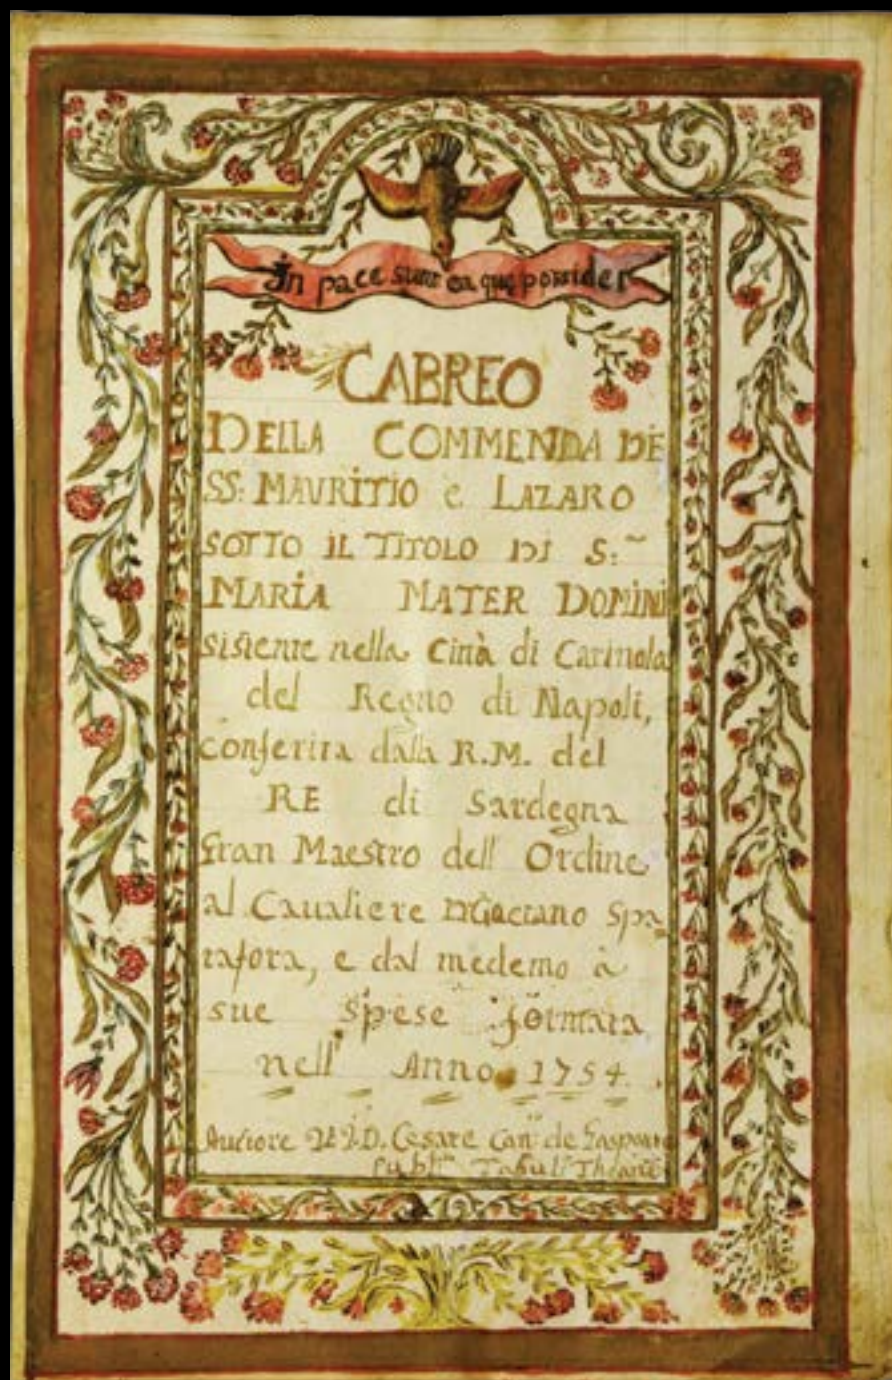 In pace sunt ea que possidet
CABREO
DELLA COMMENDA DE
SS: MAVRITIO e LAZARO
SOTTO IL TITOLO DI S:~
MARIA MATER DOMINI
sistente nella Città di Carinola
del Regno di Napoli,
conferita dalla R.M. del
RE di Sardegna
Gran Maestro dell' Ordine
al Caualiere D. Gaetano Spa-
rafora, e dal medemo à
sue spese formata
nell' Anno 1754.
Autore D. Cesare Can: de Gasparo
Publ: Tabul: